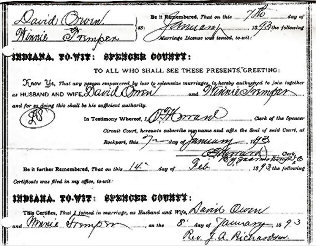 David Owen Be it Remembered, That on this 7th day of
TO January 1893 the following
Winnie Trimper Marriage License was issued, to-wit:
INDIANA, TO-WIT: SPENCER COUNTY:
TO ALL WHO SHALL SEE THESE PRESENTS, GREETING:
Know Ye, That any person empowered by law to solemnize marriages, is hereby authorized to join together
as HUSBAND AND WIFE, David Owen and Winnie Trimper
and for so doing this shall be his sufficient authority.
In Testimony Whereof, I, Clerk of the Spencer
Circuit Court, hereunto subscribe my name and affix the Seal of said Court, at
Rockport, this 7 day of January 1893
Clerk.
Be it further Remembered, That on this 14 day of Feb 1893 the following
Certificate was filed in my office, to-wit:
INDIANA, TO-WIT: SPENCER COUNTY:
This Certifies, That I joined in marriage, as Husband and Wife, David Owen
and Winnie Trimper on the 8 day of January 1893
Rev. J. A. Richardson